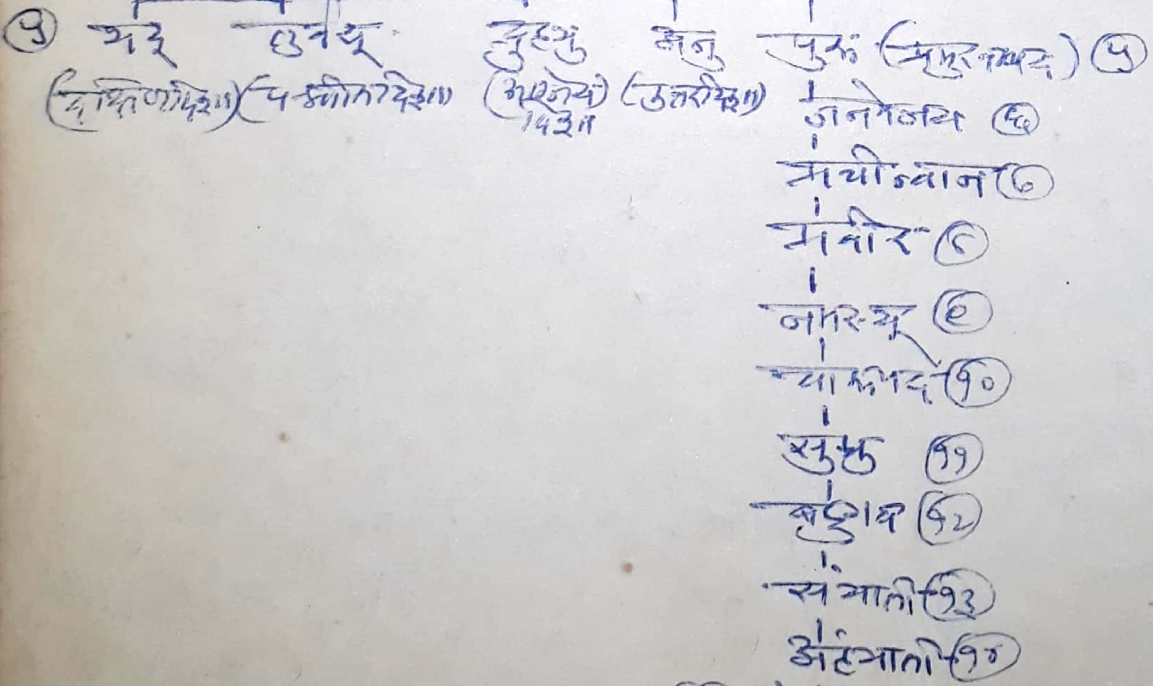 ५ यदु तुर्वसू द्रुह्यु अनु पुरू ५
(दक्षिणदिशा) (पश्चिमदिशा) (आग्नेय (उत्तरदिशा) जनमेजय ६
दिशा
प्राचीन्वान ७
प्रवीर ८
नमस्यू ९
चारूपद १०
सुद्यु ११
बहुगव १२
संयाती १३
अहंयाती १४